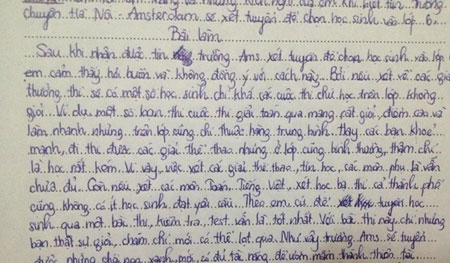 chuyên Hà Nội - Amsterdam sẽ xét tuyển để chọn học sinh vào lớp 6...
Bài làm
Sau khi nhận được tin trường Ams xét tuyển để chọn học sinh vào lớp 6
em cảm thấy hơi buồn và không đồng ý với cách này. Bởi nếu xét về các giải
thưởng thì sẽ có một số học sinh chỉ khá các cuộc thi chứ học trên lớp không
giỏi. Ví dụ một số bạn thi cuộc thi giải toán qua mạng rất giỏi, chăm cày và
làm nhanh nhưng trên lớp cũng chỉ thuộc hạng trung bình. Hay các bạn khoẻ
mạnh, đi thi được các giải thể thao nhưng ở lớp cũng bình thường, thậm chí
là học rất kém. Vì vậy, việc xét các giải thể thao, tin học, các môn phụ là vẫn
chưa đủ. Còn nếu xét các môn Toán, Tiếng Việt, xét học bạ thì cả thành phố
cũng không có ít học sinh đạt yêu cầu. Theo em cứ để tuyển học
sinh qua một bài thi, kiểm tra, test vẫn là tốt nhất. Với bài thi này chỉ những
bạn thật sự giỏi, chăm chỉ mới có thể lọt qua. Như vậy trường Ams sẽ tuyển
được những xanh mới có đủ tài năng để ươm mầm thành thiên tài